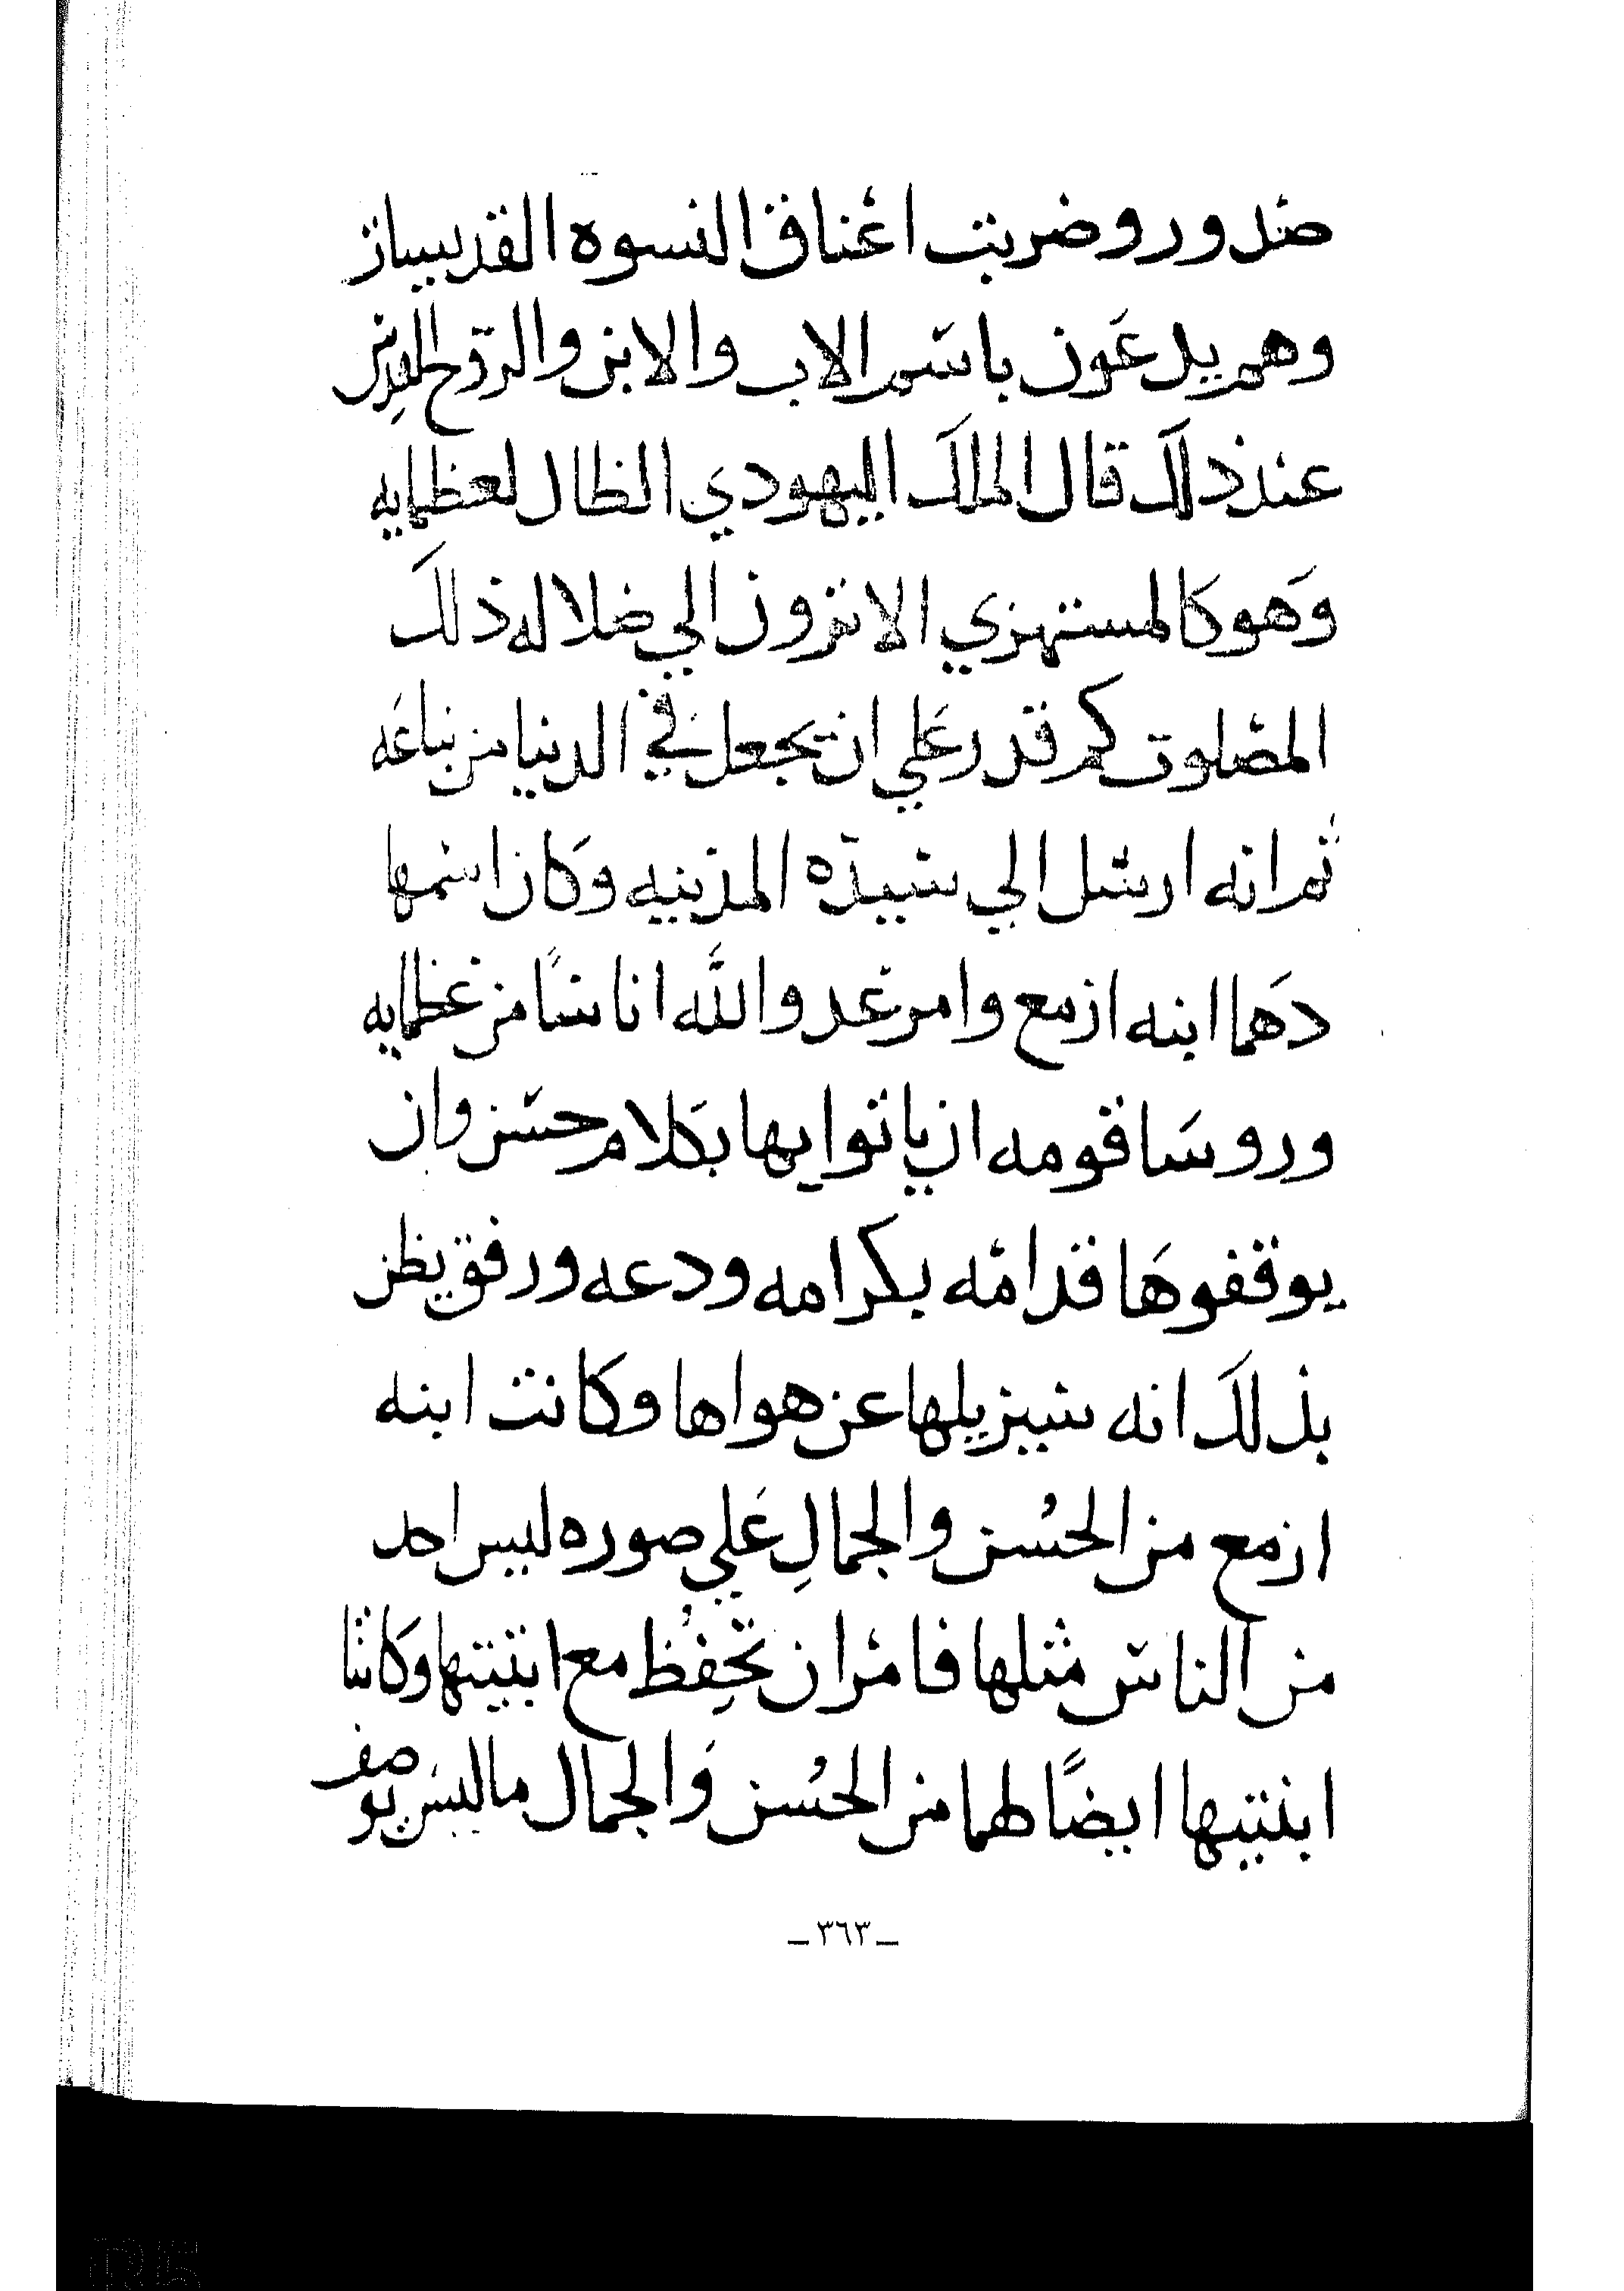 صدور وضربت اعناق النسوه القديسات
وهم يدعون باسم الاب والابن والروح القدس
عند ذلك قال الملك اليهودي الظال لعظمايه
وهو كالمستهزي الا ترون الي ضلاله ذلك
المصلوب كم قدر علي ان يجعل في الدنيا من تباعه
ثم انه ارسل الي سيده المدينه وكان اسمها
دهما ابنه ازمع وامر عدو الله اناسًا من عظمايه
وروسا قومه ان ياتوا بها بكلام حسن وان
يوقفوها قدامه بكرامه ودعه ورفق يظن
بذلك انه سيزيلها عن هواها وكانت ابنه
ازمع من الحسُن والجمالِ علي صوره ليس احد
من الناس مثلها فامر ان تحفظ مع ابنتيها وكانتا
ابنتيها ايضًا لهما من الحسُن والجمال ما ليس يوصف
ـ٣٦٣ـ